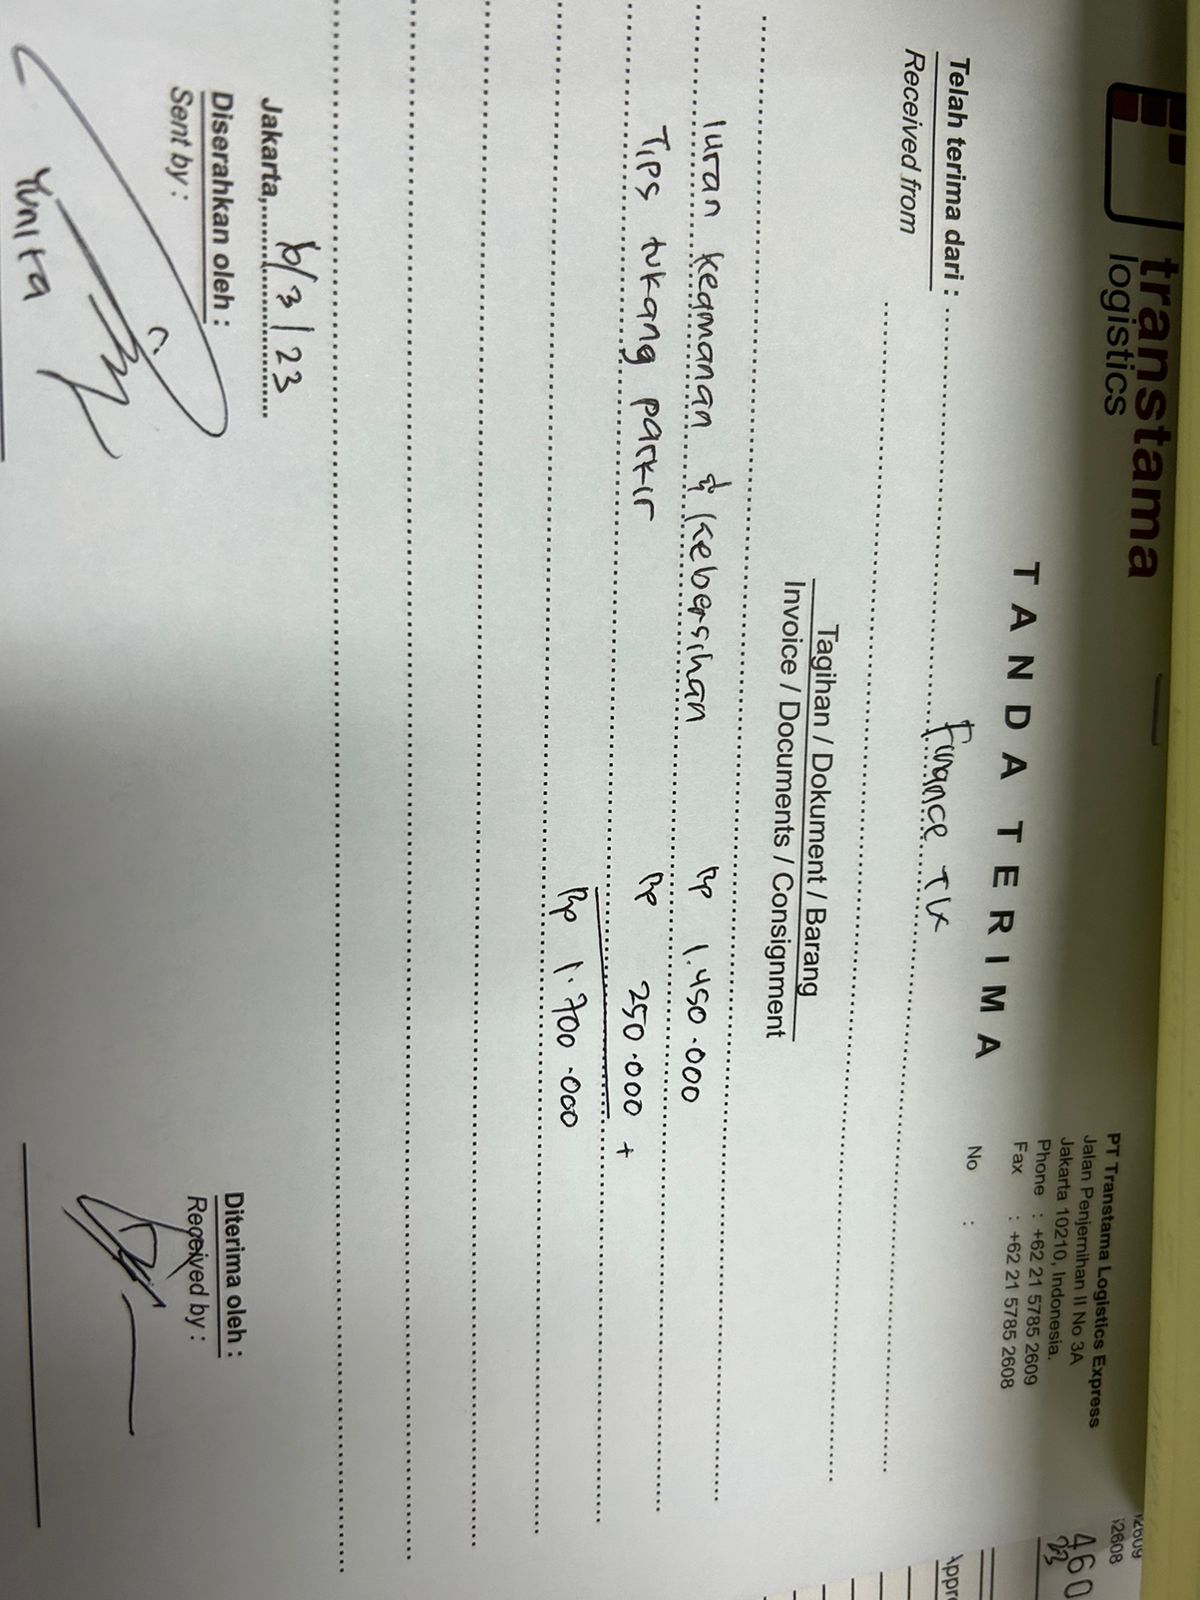 transtama
logistics
TANDA TERIMA
PT Transtama Logistics Express
Jalan Penjernihan II No 3A
Jakarta 10210, Indonesia.
Phone : +62 21 5785 2609
Fax : +62 21 5785 2608
No :
Telah terima dari : Finance TLX
Received from
Tagihan / Dokument / Barang
Invoice / Documents / Consignment
Iuran keamanan & kebersihan Rp 1.450.000
Tips tukang parkir Rp 250.000 +
Rp 1.700.000
Jakarta, 6/3/23
Diserahkan oleh :
Sent by :
Yunita
Diterima oleh :
Received by :
2609
2608
460
23
Appr